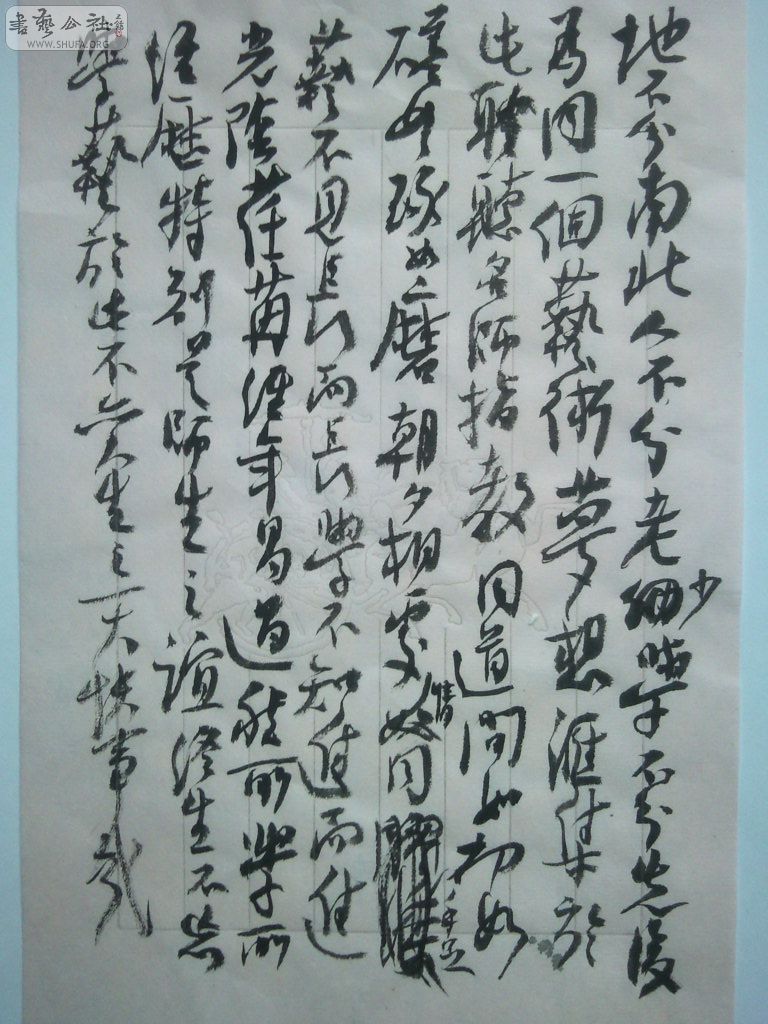 書藝公社
WWW.SHUFA.ORG
地不分南北人不分老少學不分先後
爲同一個藝術夢想滙集於
此聆聽名師指教同道間如切如
磋如琢如磨朝夕相處情如同手足
藝不見長而長學不知進而進
光陰荏苒經年易逝然所學所
經歷特別是師生之誼終生不忘
學藝於此不亦人生之一大快事哉